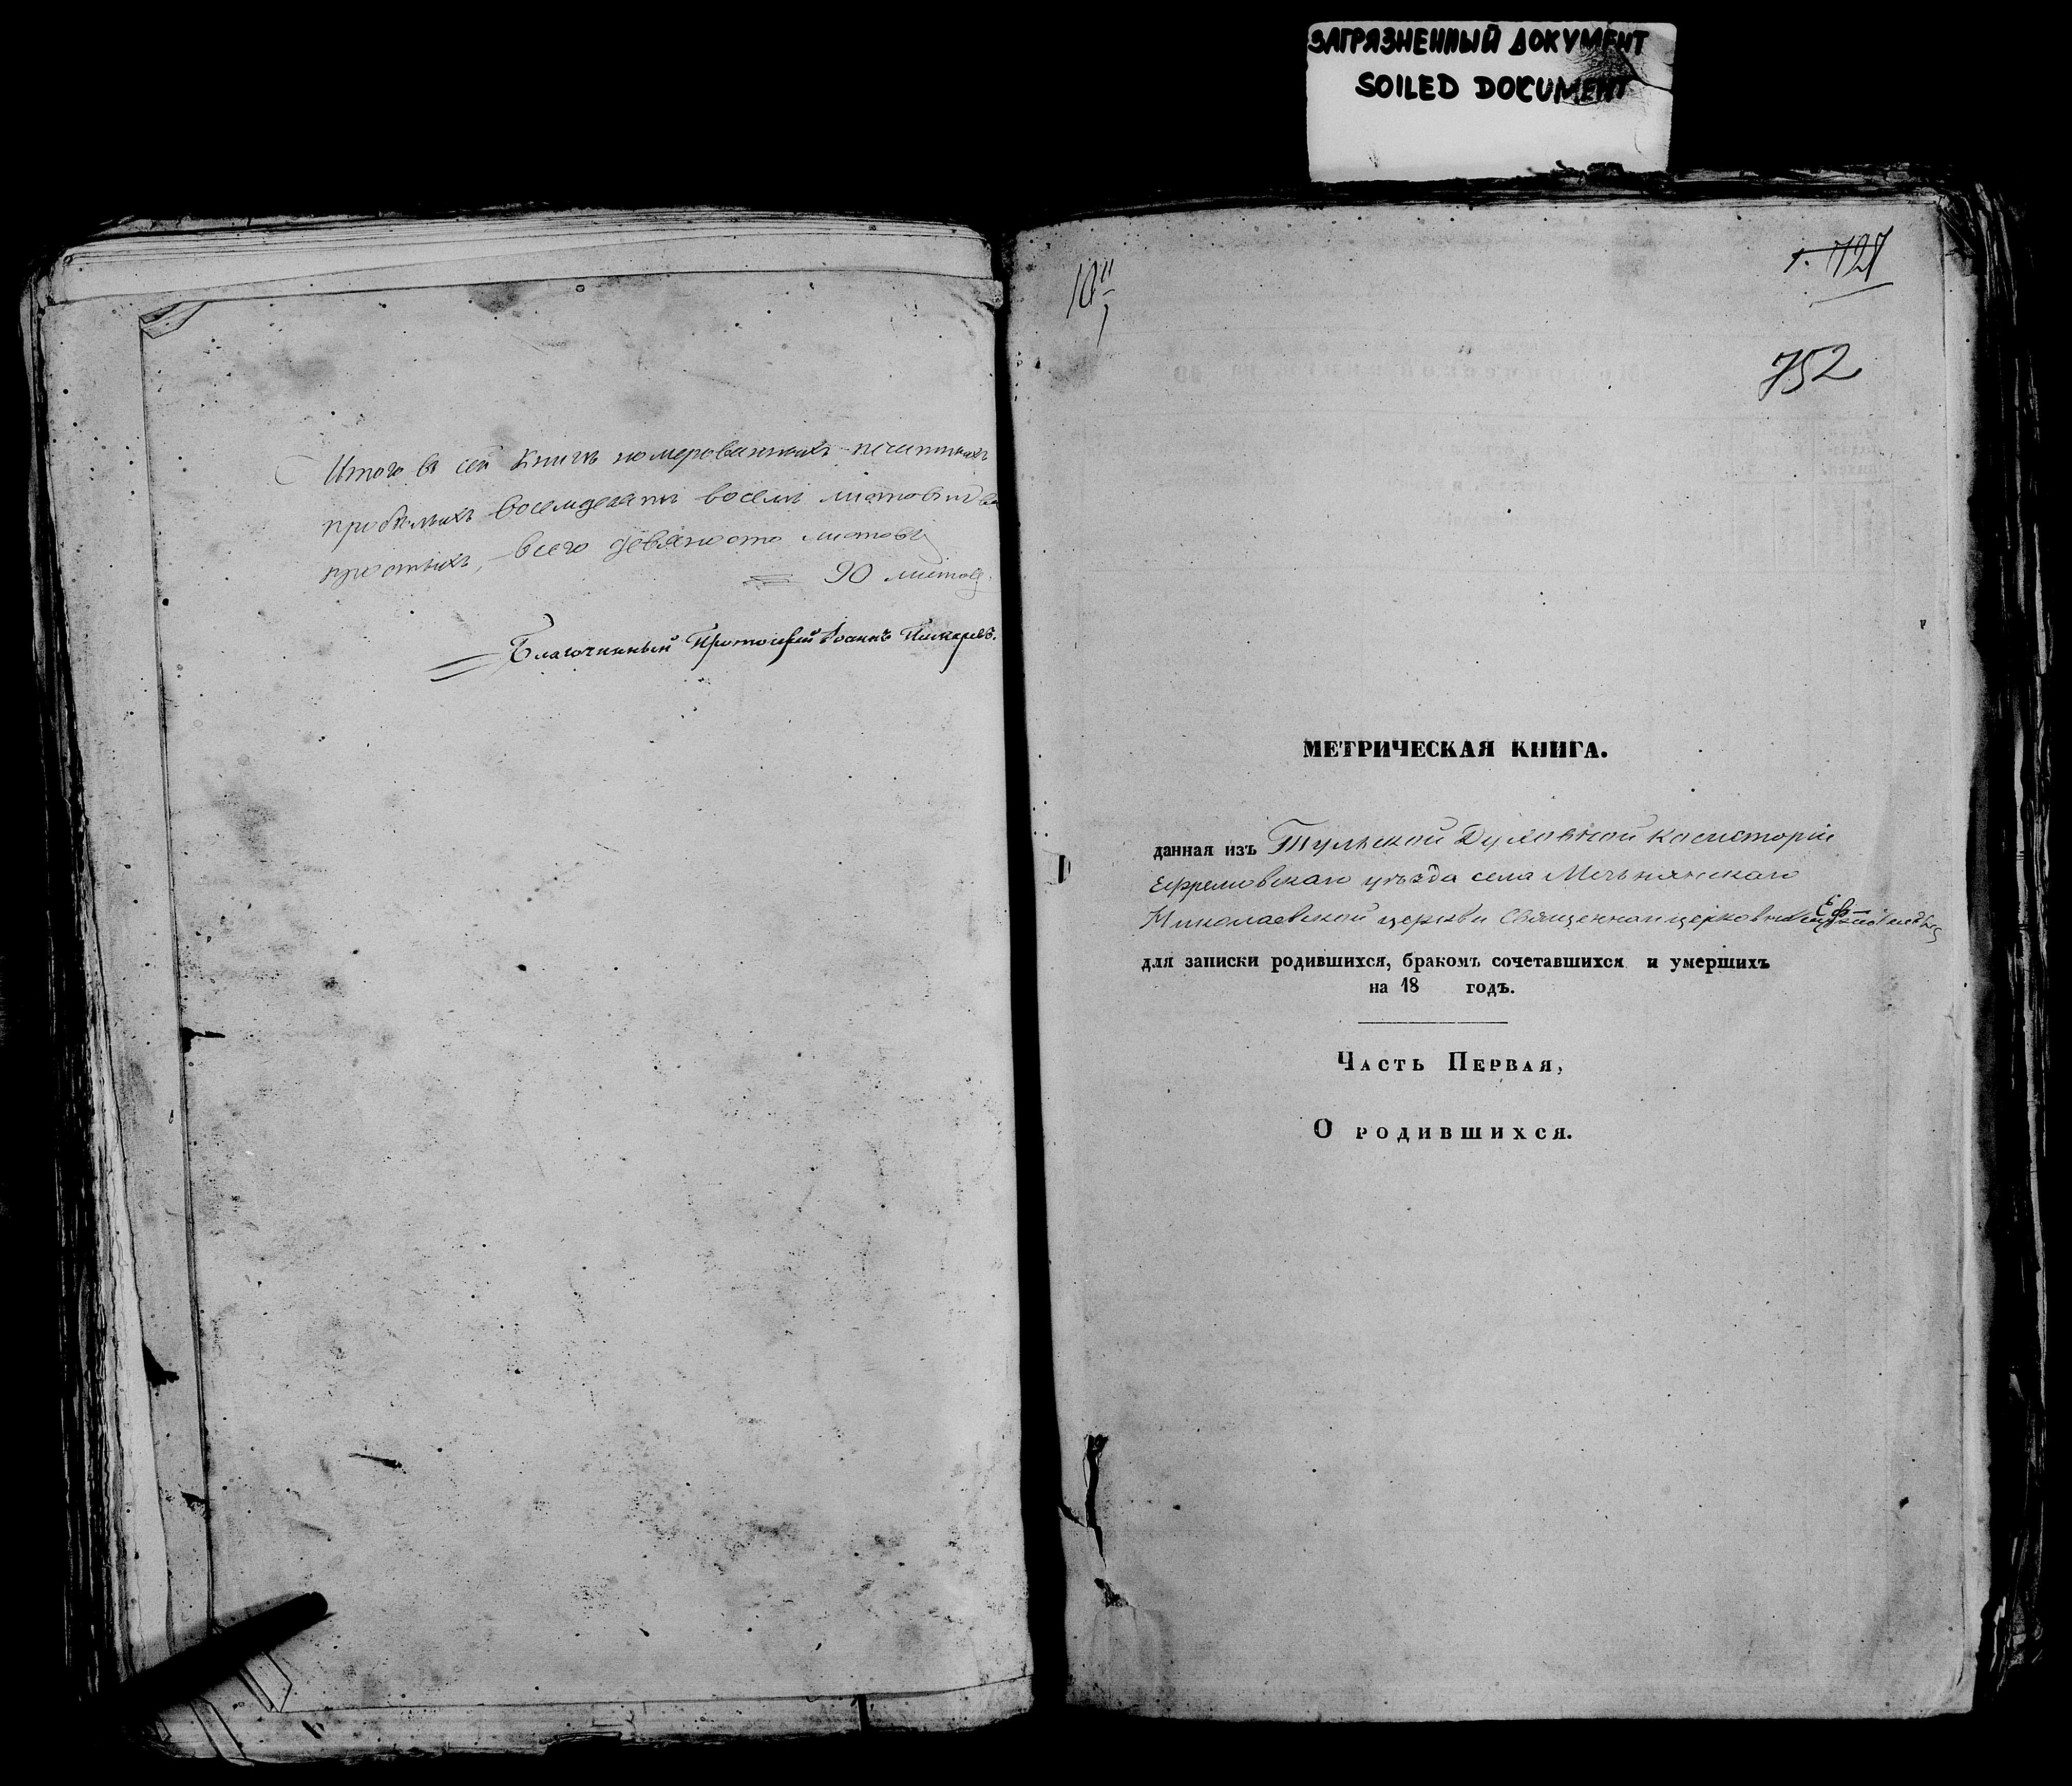 ЗАГРЯЗНЕННЫЙ ДОКУМЕНТ
SOILED DOCUMENT
Итого въ сей Книгѣ номерованныхъ печатныхъ
пробѣлыхъ восемдесятъ восемь листовъ и два
простыхъ, всего девяносто листовъ
90 листовъ.
Благочинный Протоіерей Іоаннъ
727
752
МЕТРИЧЕСКАЯ КНИГА.
данная изъ Тульской Духовной Консисторіи
Ефремовскаго уѣзда села
Николаевской церкви Священно и церковно
для записки родившихся, бракомъ сочетавшихся и умершихъ
на 18 годъ.
Часть Первая,
О родившихся.